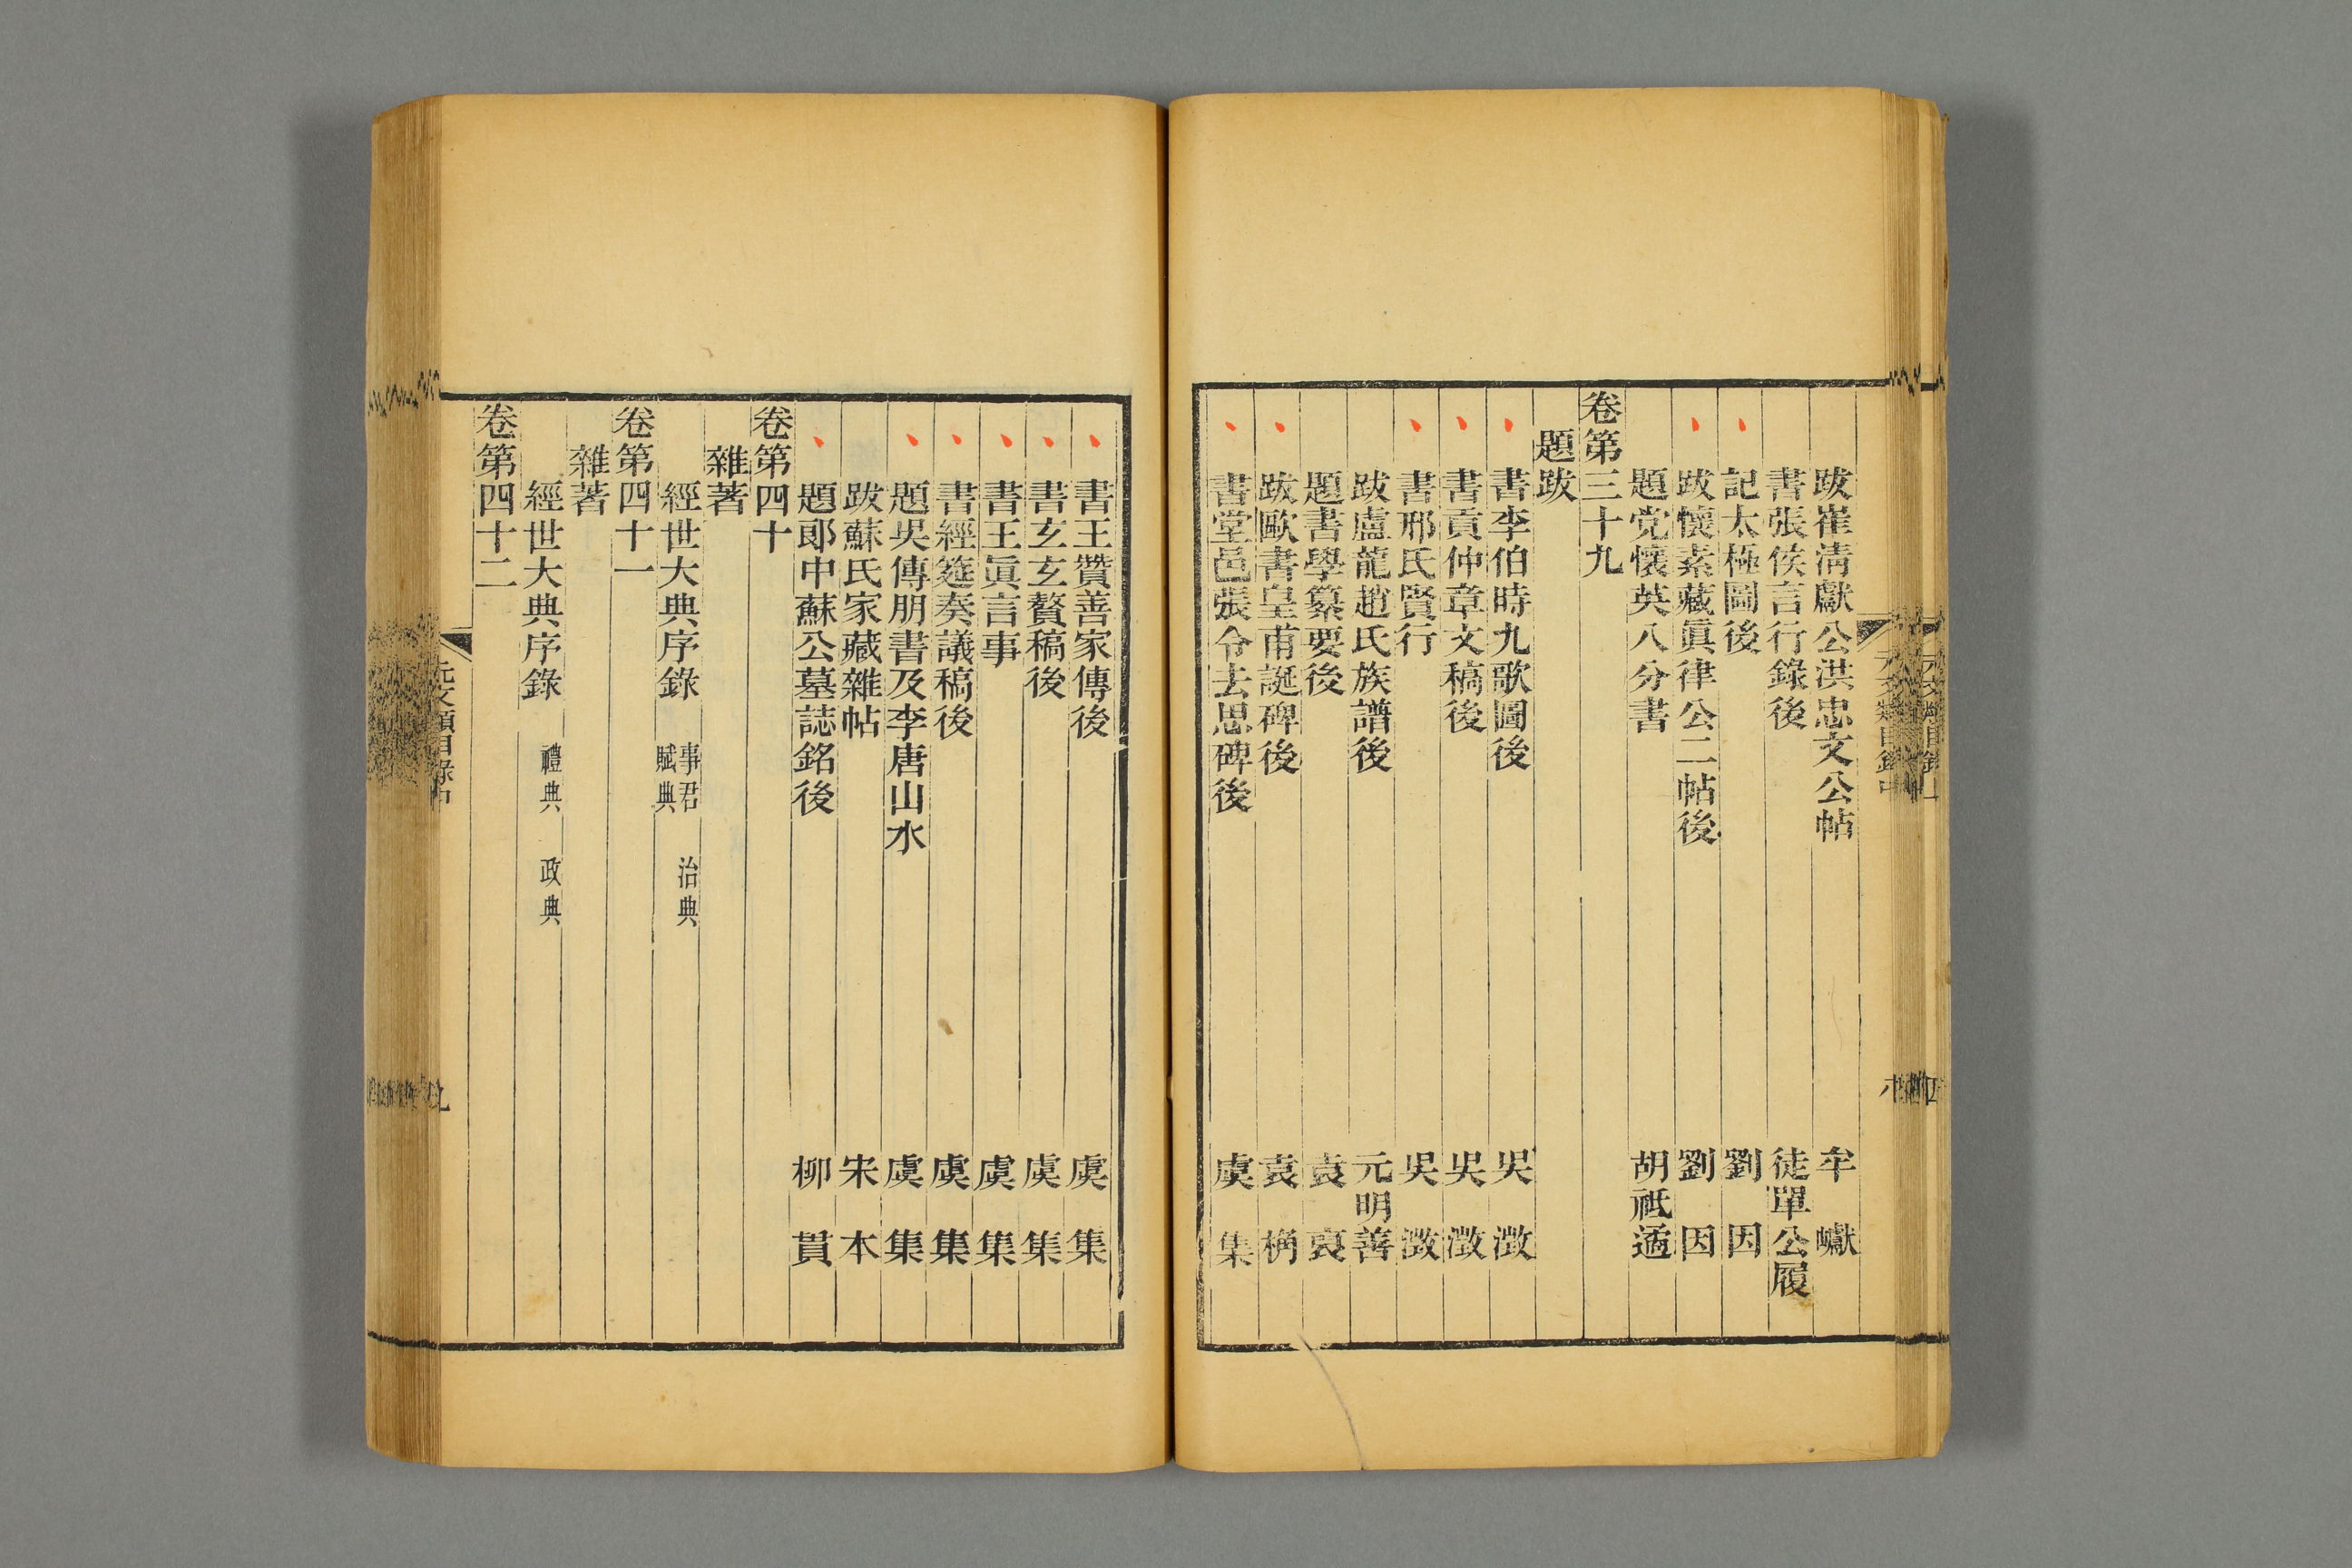 跋崔淸獻公洪忠文公帖 牟巘
書張侯言行錄後 徒單公履
記太極圖後 劉因
跋懷素藏眞律公二帖後 劉因
題党懷英八分書 胡祗遹
卷第三十九
題跋
書李伯時九歌圖後 吳澂
書貢仲章文稿後 吳澂
書邢氏賢行 吳澂
跋盧龍趙氏族譜後 元明善
題書學纂要後 袁裒
跋歐書皇甫誕碑後 袁桷
書堂邑張令去思碑後 虞集
書王贊善家傳後 虞集
書玄玄贅稿後 虞集
書王眞言事 虞集
書經筵奏議稿後 虞集
題吳傳朋書及李唐山水 虞集
跋蘇氏家藏雜帖 宋本
題郞中蘇公墓誌銘後 柳貫
卷第四十
雜著
經世大典序錄 事君 治典 賦典
卷第四十一
雜著
經世大典序錄 禮典 政典
卷第四十二
元文類目錄中